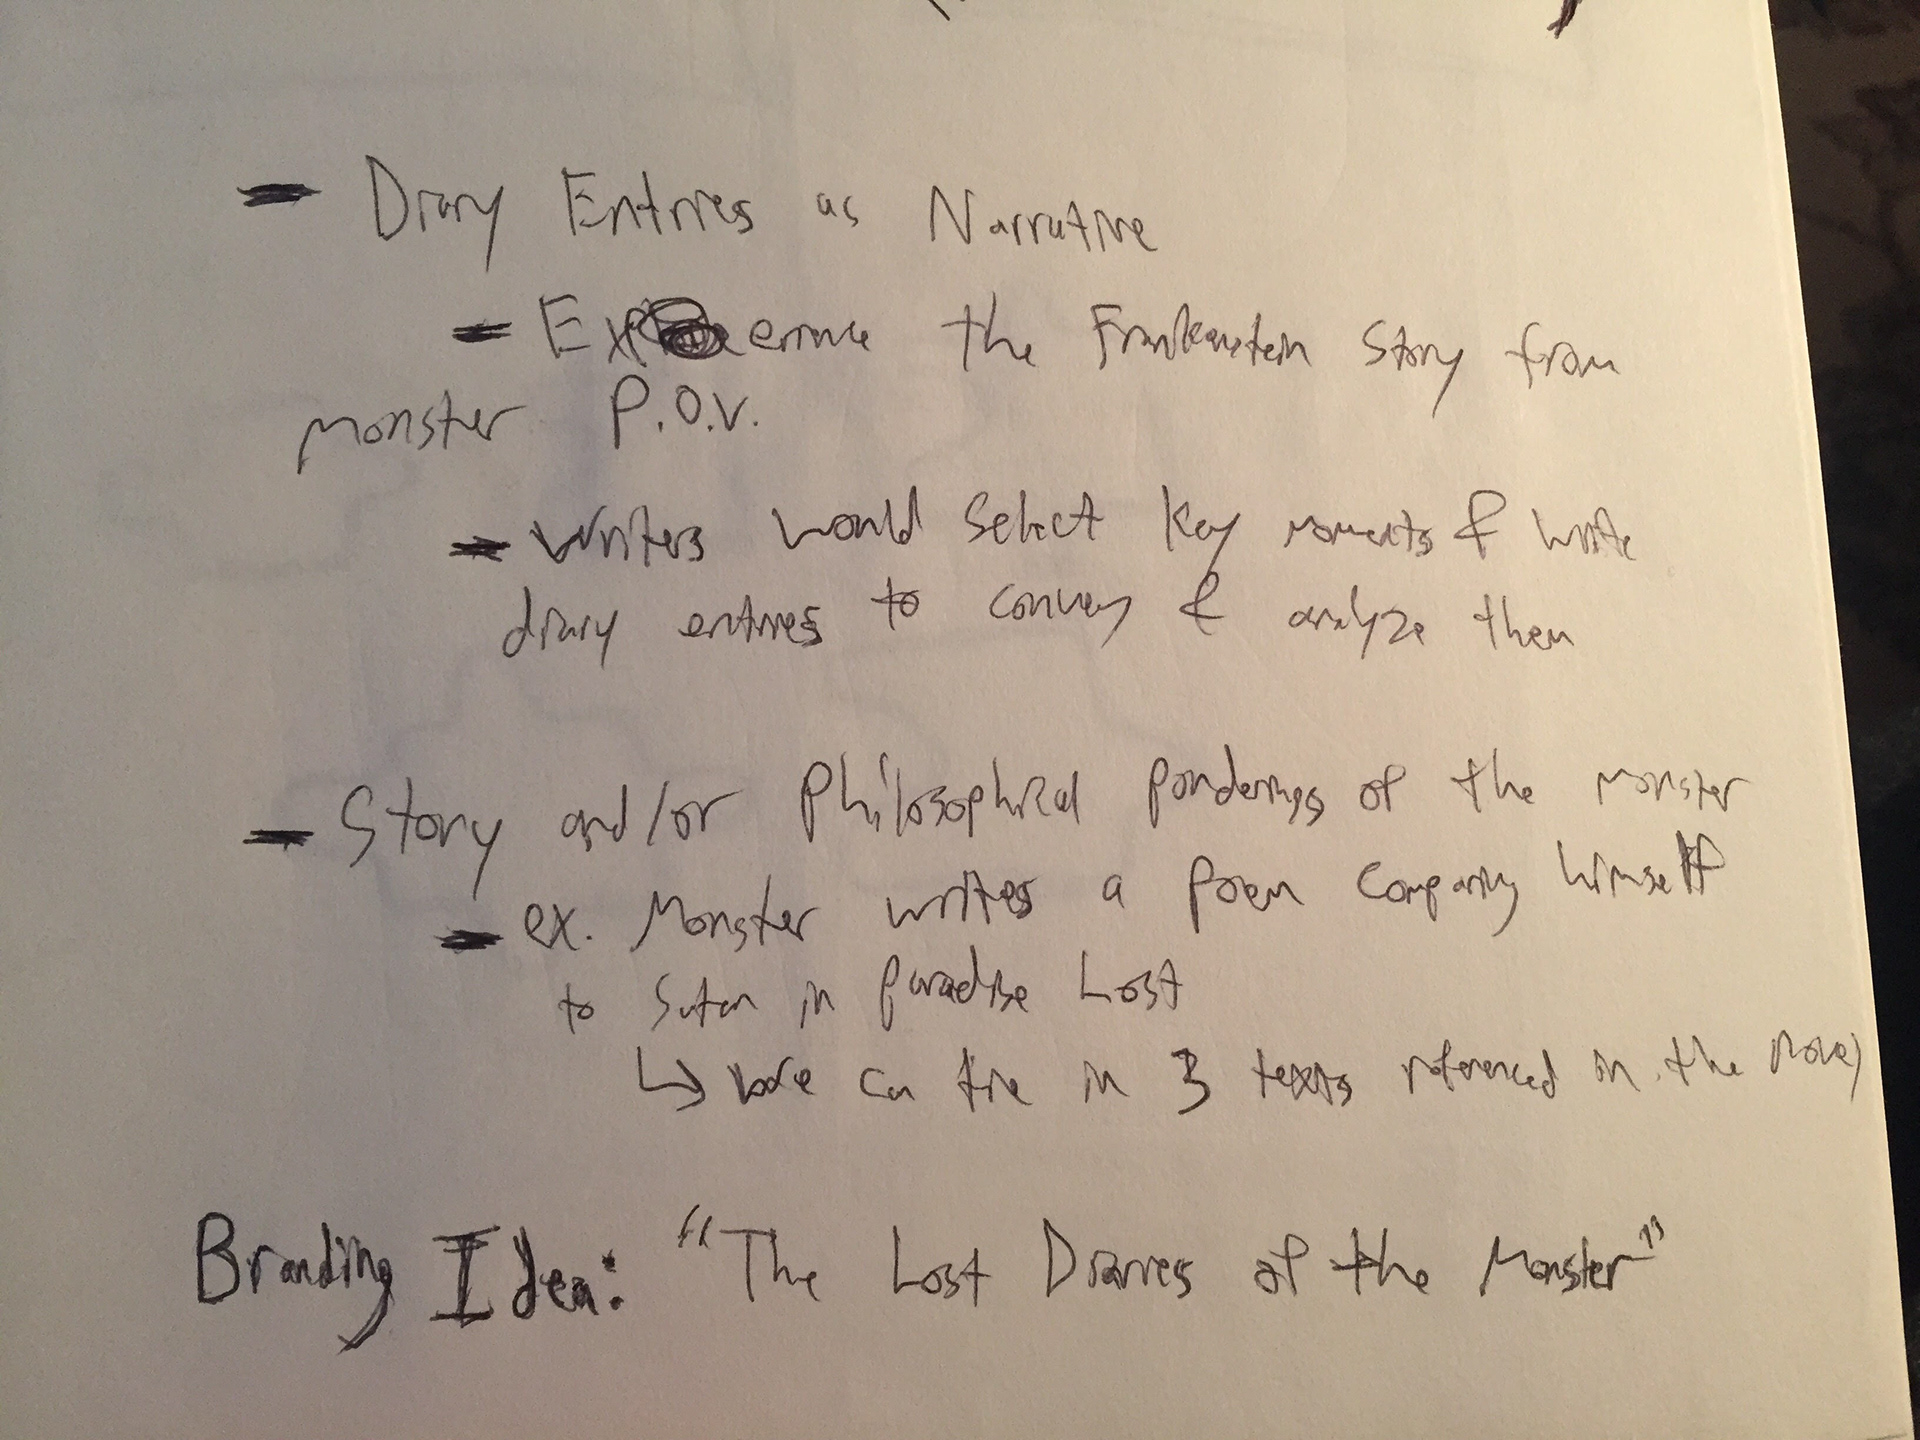 - Diary Entries as Narrative
- Experience the Frankenstein Story from
monster P.O.V.
- Writers would select key moments & write
diary entries to convey & analyze them
- Story and/or Philosophical ponderings of the monster
- ex. Monster writes a poem comparing himself
to Satan in Paradise Lost
↳ we can tie in 3 texts referenced in the novel
Branding Idea: "The Lost Diaries of the Monster"